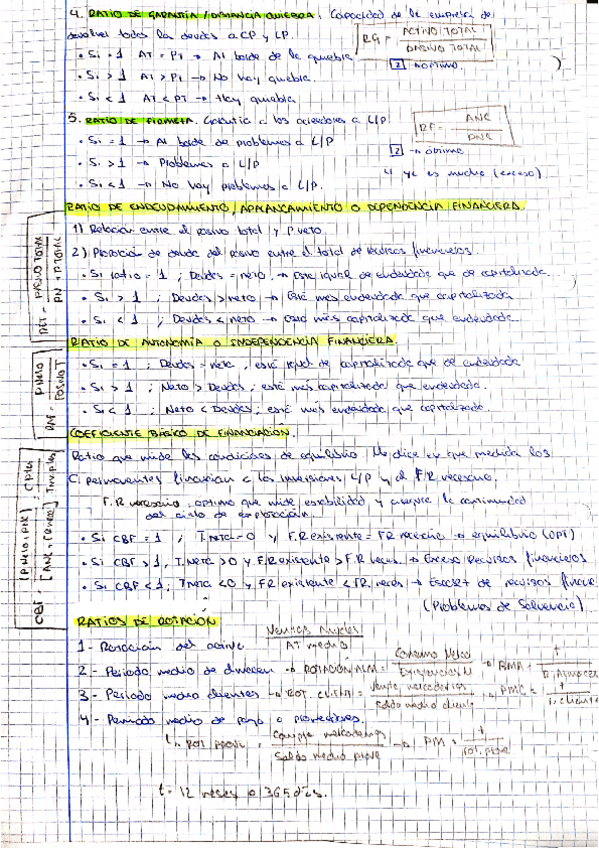 4. RATIO DE GARANTÍA / DISTANCIA QUIEBRA: Capacidad de la empresa de
devolver todas las deudas a CP y LP.
RG = ACTIVO TOTAL / PASIVO TOTAL
• Si = 1 AT = PT → Al borde de la quiebra
2 → óptimo.
• Si > 1 AT > PT → No hay quiebra.
• Si < 1 AT < PT → Hay quiebra
5. RATIO DE FIRMEZA. Garantía a los acreedores a L/P.
RF = ANC / PNC
• Si = 1 → Al borde de problemas a L/P
2 → óptimo
• Si > 1 → Problemas a L/P
4 ya es mucho (exceso)
• Si < 1 → No hay problemas a L/P.
RATIO DE ENDEUDAMIENTO, APALANCAMIENTO O DEPENDENCIA FINANCIERA.
1) Relación entre el pasivo total y P neto.
2) Proporción de deuda del pasivo entre el total de recursos financieros.
RET = PASIVO TOTAL / PN + P TOTAL
• Si ratio = 1 ; Deudas = neto → Está igual de endeudada que de capitalizada.
• Si > 1 ; Deudas > neto → Está más endeudada que capitalizada
• Si < 1 ; Deudas < neto → Está más capitalizada que endeudada.
RATIO DE AUTONOMÍA O INDEPENDENCIA FINANCIERA.
RAF = P NETO / PASIVO T
• Si = 1 ; Deudas = neto , está igual de capitalizada que de endeudada
• Si > 1 ; Neto > Deudas ; está más capitalizada que endeudada.
• Si < 1 ; Neto < Deudas ; está más endeudada que capitalizada.
COEFICIENTE BÁSICO DE FINANCIACIÓN.
Ratio que mide las condiciones de equilibrio. Me dice en que medida los
C. permanentes financian a las inversiones L/P y el F.R necesario.
F.R necesario, óptimo que mide estabilidad y asegura la continuidad
del ciclo de explotación.
CBF =
• Si CBF = 1 ; T.neta = 0 y F.R existente = FR necesario → equilibrio (OPT)
• Si CBF > 1, T.neta > 0 y F.R existente > F.R neces. → Exceso Recursos financieros
• Si CBF < 1; T neta < 0 y FR existente < FR neces → Escasez de recursos
(Problemas de Solvencia)
RATIOS DE ROTACIÓN
1 - Rotación del activo Ventas Anuales / AT medio
2 - Periodo medio de almacen → ROTACIÓN ALM =
3 - Periodo medio clientes → ROT. CLIENT = Ventas mercaderías / Saldo medio cliente → PMC =
4 - Periodo medio de pago a proveedores.
↳ ROT PROVE = Compra mercaderías / Saldo medio prove → PM = t / rot. prove
t = 12 meses o 365 días.